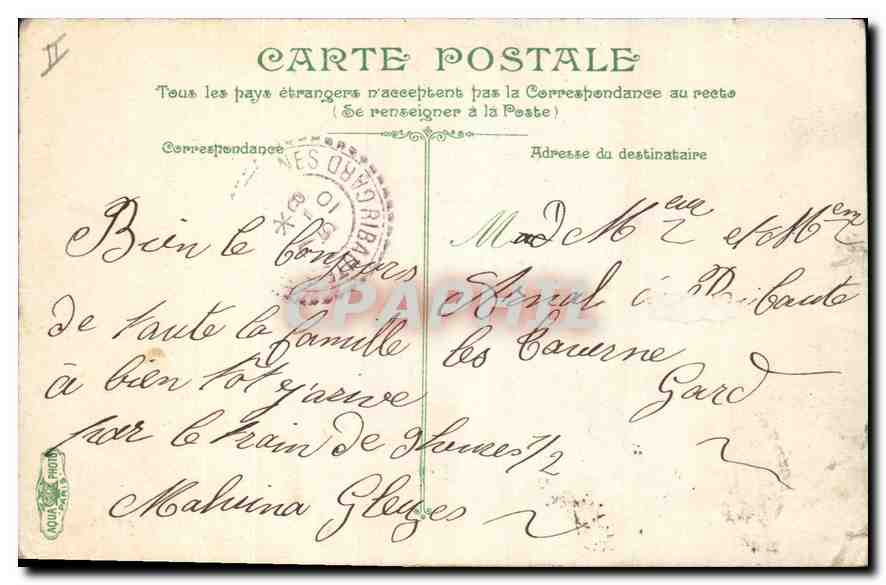 II
CARTE POSTALE
Tous les pays étrangers n'acceptent pas la Correspondance au recto
(Se renseigner à la Poste)
Correspondance
Bien le bonjours
de toute la famille
à bien tôt j'arive
par le train de 9 heures 1/2
Malvina Gleizes
Adresse du destinataire
et Mem
Arnal à Ribaute
les Taverne
Gard
RIBAUTE
GARD
10
CPAPHIL
AQUA PHOTO
PARIS